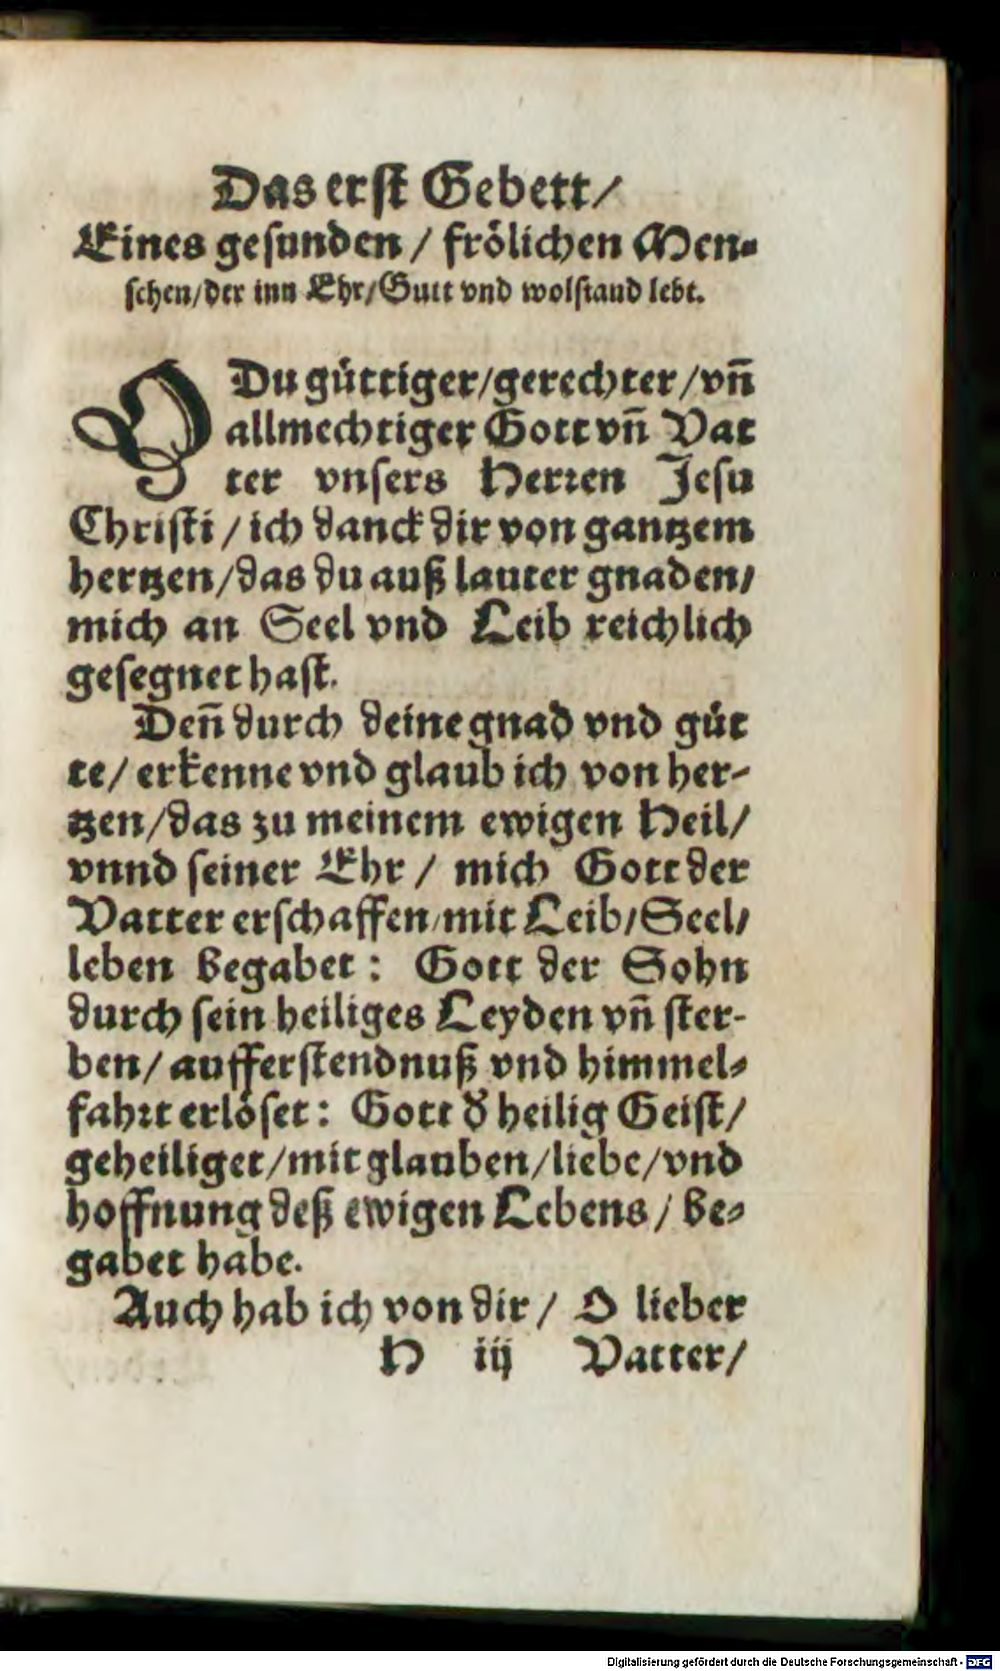 Das erst Gebett/
Eines gesunden / frölichen Men⸗
schen/der inn Ehr/Gutt vnd wolstand lebt.
O Du güttiger/gerechter/vñ
allmechtiger Gott vñ Vat
ter vnsers Herꝛen Jesu
Christi / ich danck dir von gantzem
hertzen/das du auß lauter gnaden/
mich an Seel vnd Leib reichlich
gesegnet hast.
Deñ durch deine gnad vnd güt
te/ erkenne vnd glaub ich von her⸗
tzen/das zu meinem ewigen Heil/
vnnd seiner Ehr / mich Gott der
Vatter erschaffen/mit Leib/Seel/
leben begabet: Gott der Sohn
durch sein heiliges Leyden vñ ster⸗
ben/ aufferstendnuß vnd himmel⸗
fahꝛt erlöset: Gott d̕ heilig Geist/
geheiliget/mit glauben/liebe/vnd
hoffnung deß ewigen Lebens/ be⸗
gabet habe.
Auch hab ich von dir/ O lieber
H iij Vatter/
Digitalisierung gefördert durch die Deutsche Forschungsgemeinschaft - DFG